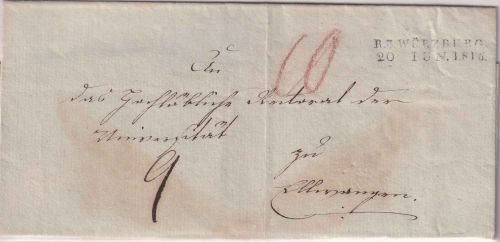 R.3.WÜRZBURG.
20 IUN.1816.
10
An
das Hochlöbliche Rectorat der
Universität
9
zu
Ellwangen.